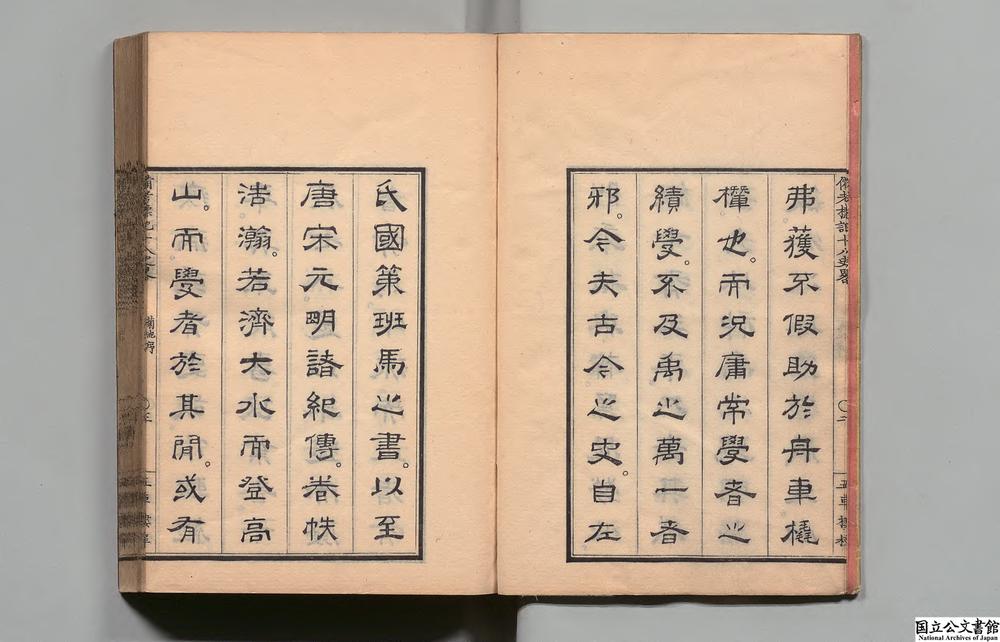 弗獲不假助於舟車橇
欙也。而況庸常學者之
績學。不及禹之萬一者
邪。今夫古今之史。自左
氏國策班馬之書。以至
唐宋元明諸紀傳。卷帙
浩瀚。若濟大水而登高
山。而學者於其閒。或有
十八史畧
国立公文書館
National Archives of Japan